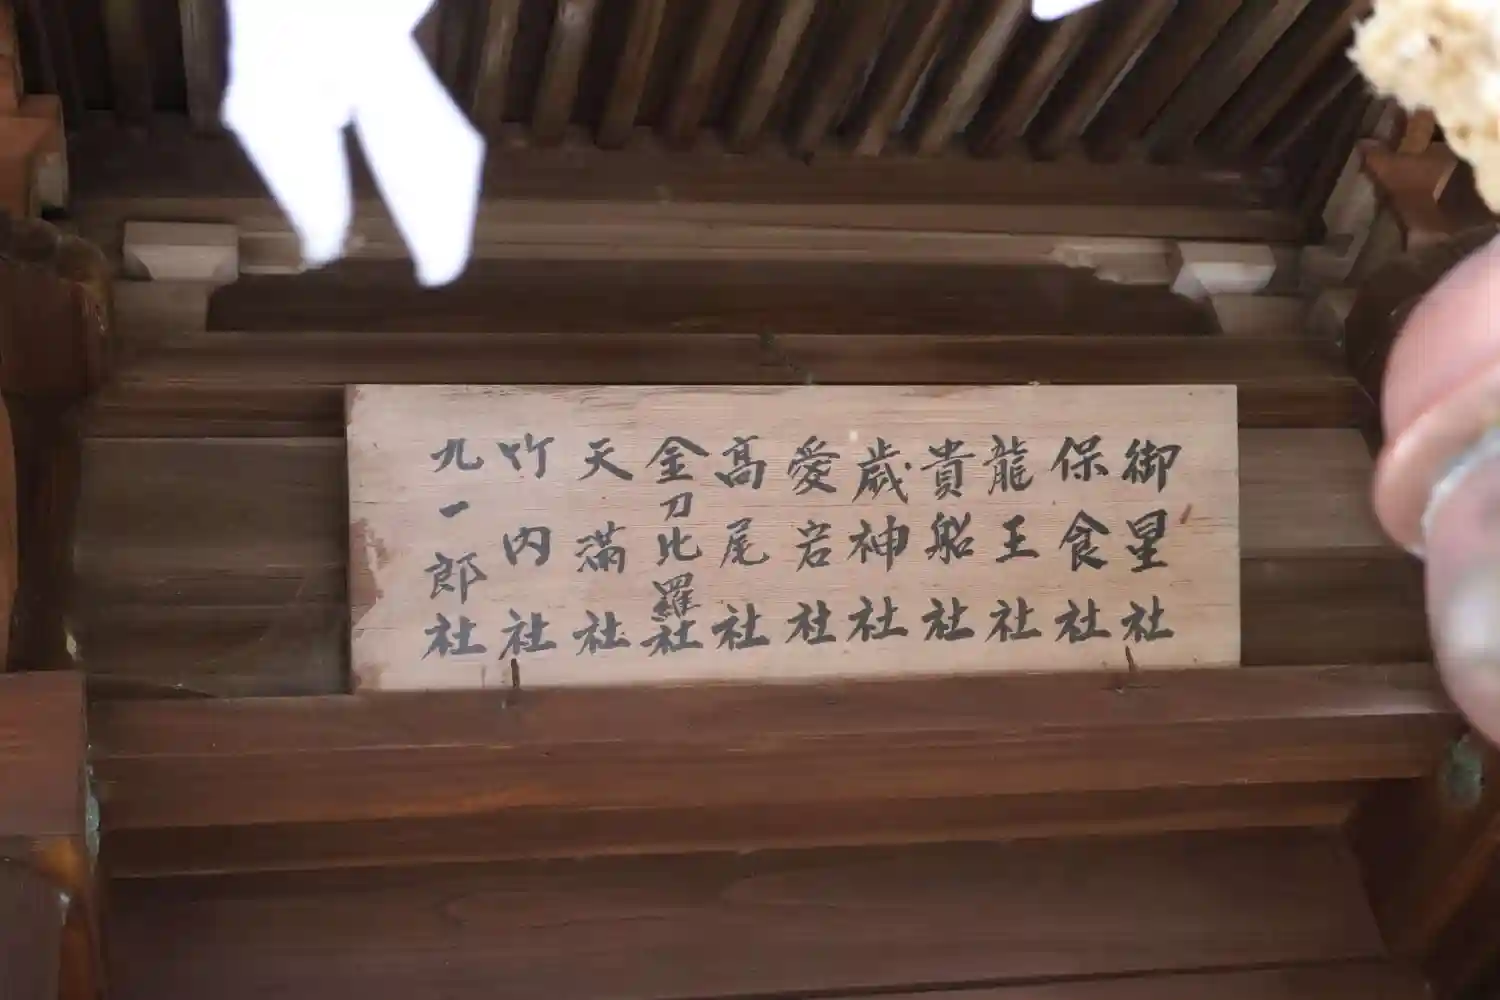 御星社
保食社
龍王社
貴船社
歳神社
愛宕社
高尾社
金刀比羅社
天満社
竹内社
九一郎社